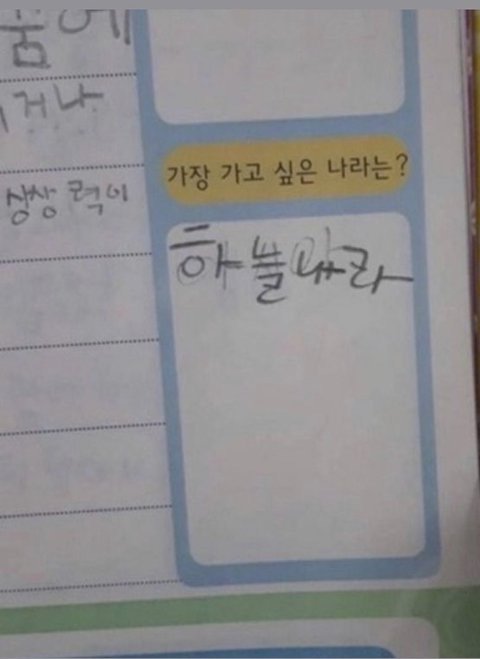 꿈에
거나
상상력이
가장 가고 싶은 나라는?
하늘나라